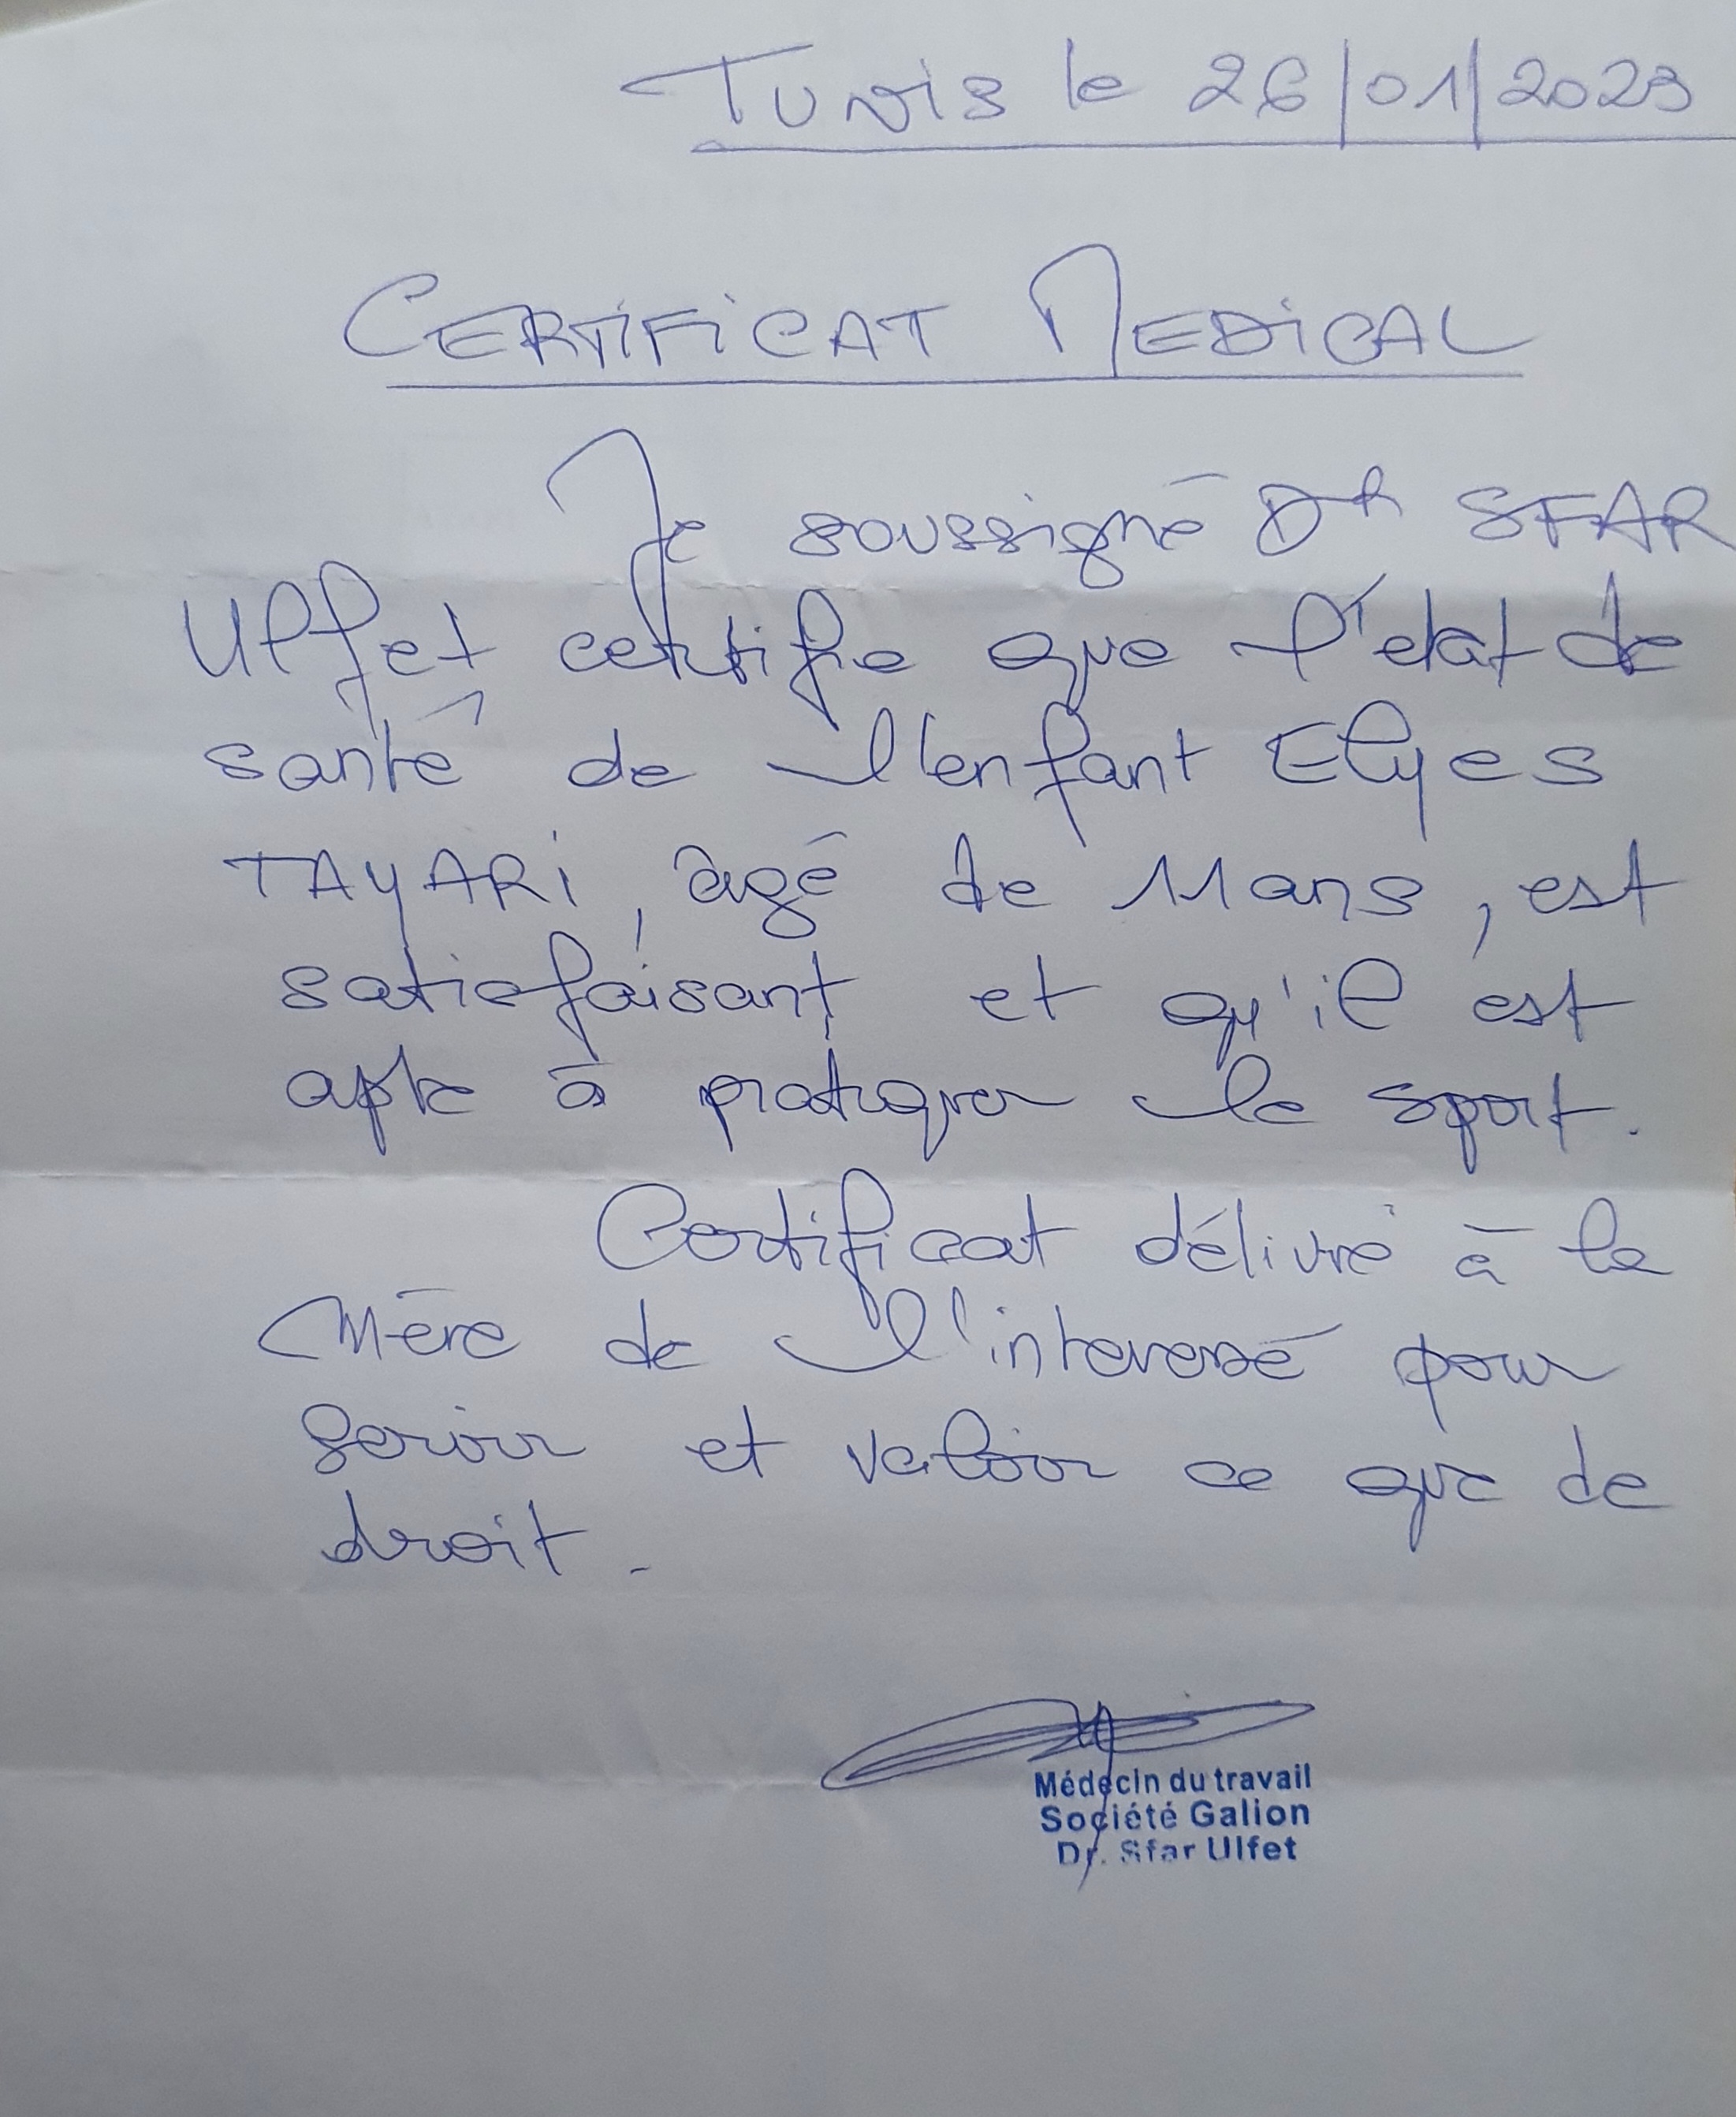 Tunis le 26/01/2023
CERTIFICAT MEDICAL
Je soussigné Dr SFAR
Ulfet certifie que l'état de
santé de l'enfant Elyes
TAYARI, âgé de 11 ans, est
satisfaisant et qu'il est
apte à pratiquer le sport.
Certificat délivré à la
Mère de l'interessé pour
servir et valoir ce que de
droit.
Médecin du travail
Société Galion
Dr. Sfar Ulfet